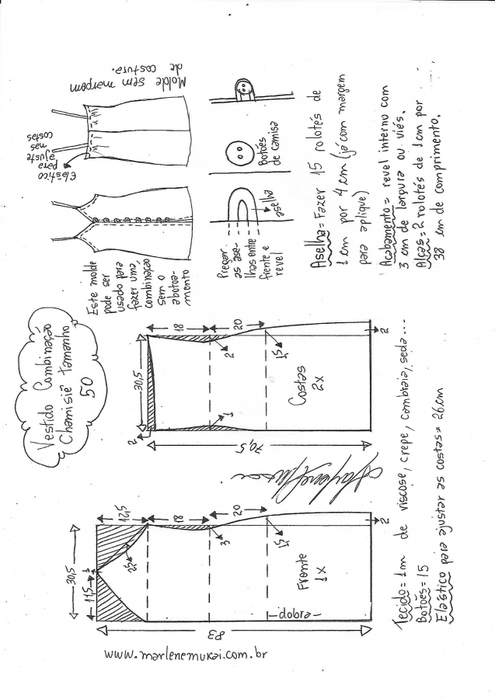 Vestido Combinação
Chamisiê Tamanho
50
Este molde
pode ser
usado para
fazer uma
combinação
sem o
abotoa-
mento
Elástico
para
ajuste
nas
costas
Molde sem margem
de costura.
Pregar
as ase-
lhas entre
frente e
revel
aselha
Botões
de camisa
Aselha=Fazer 15 rolotés de
1 cm por 4 cm (já com margem
para aplique)
Acabamento= revel interno com
3 cm de largura ou viés.
Alças=2 rolotés de 1 cm por
38 cm de comprimento.
30,5
2
18
20
2
1
1,5
2
70,5
Costas
2x
30,5
11,5
12,5
2,5
18
20
3
1,5
2
83
Frente
1x
dobra
www.marlenemukai.com.br
Tecido=1m de viscose, crepe, cambraia, seda...
Botões=15
Elástico para ajustar as costas= 26cm